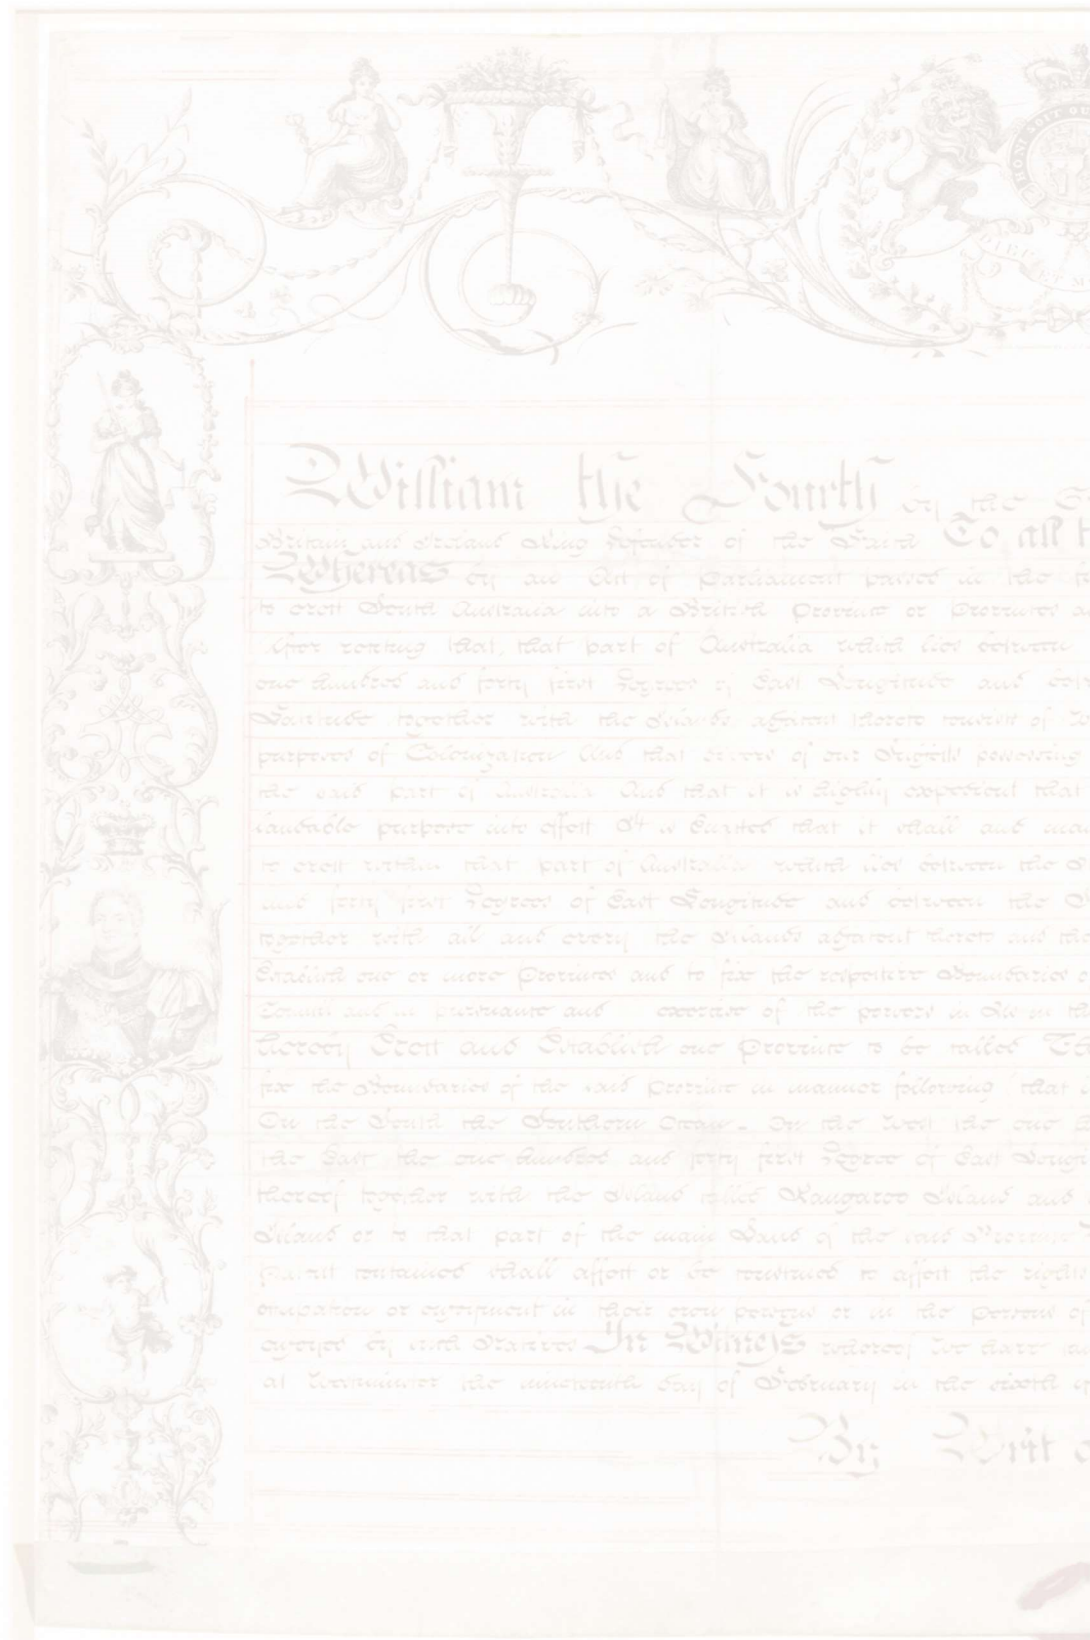 HONI SOIT QU
DIEU ET M
William the Fourth by the G
Britain and Ireland King Defender of the Faith To all t
Whereas by an Act of Parliament passed in the f
to erect South Australia into a British Province or Provinces a
After reciting that, that part of Australia which lies between
one hundred and forty first Degrees of East Longitude and
Latitude together with the Islands adjacent thereto consist of
purposes of Colonization And that divers of our Subjects possessing
the said part of Australia And that it is highly expedient that
laudable purpose into effect It is Enacted that it shall and
to erect within that part of Australia which lies between the
and forty first Degrees of East Longitude and between the
together with all and every the Islands adjacent thereto and the
Establish one or more Provinces and to fix the respective Boundaries
Council and in pursuance and exercise of the powers in Us in th
hereby Erect and Establish one Province to be called
fix the Boundaries of the said Province in manner following that
On the South the Southern Ocean - On the West the one
the East the one hundred and forty first Degree of East
thereof together with the Island called Kangaroo Island and
Island or to that part of the main Land of the said Province
Patent contained shall affect or be construed to affect the rights
occupation or enjoyment in their own persons or in the persons of
enjoyed by such Natives In Witness whereof We have
at Westminster the nineteenth day of February in the sixth
By Writ o